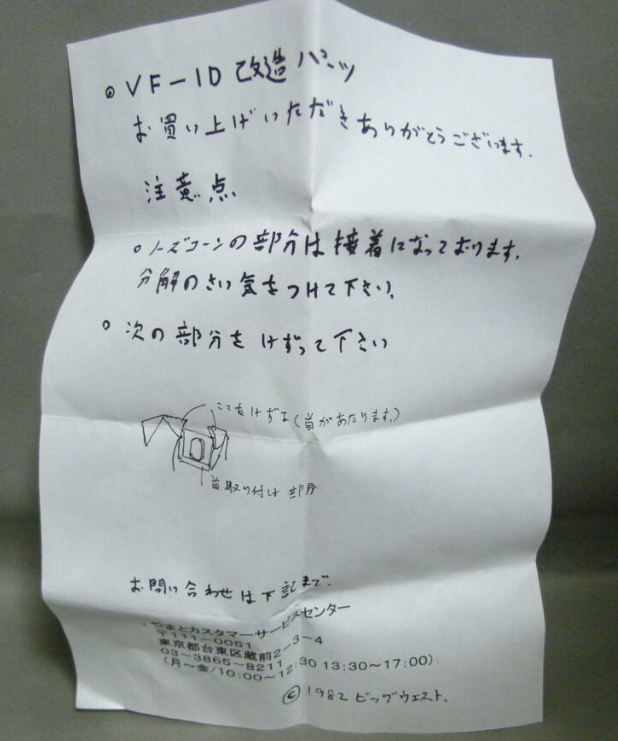 ◎ VF-1D 改造パーツ
お買い上げいただきありがとうございます。
注意点
○ノーズコーンの部分は接着になっております。
分解のさい気をつけて下さい。
○ 次の部分をけずって下さい
ここをけずる(首があたります。)
首取り付け部分
お問い合わせは下記まで。
やまとカスタマーサービスセンター
〒111-0051
東京都台東区蔵前2-3-4
03-3865-8211
(月～金/10:00～12:30 13:30～17:00)
© 1982 ビッグウエスト.